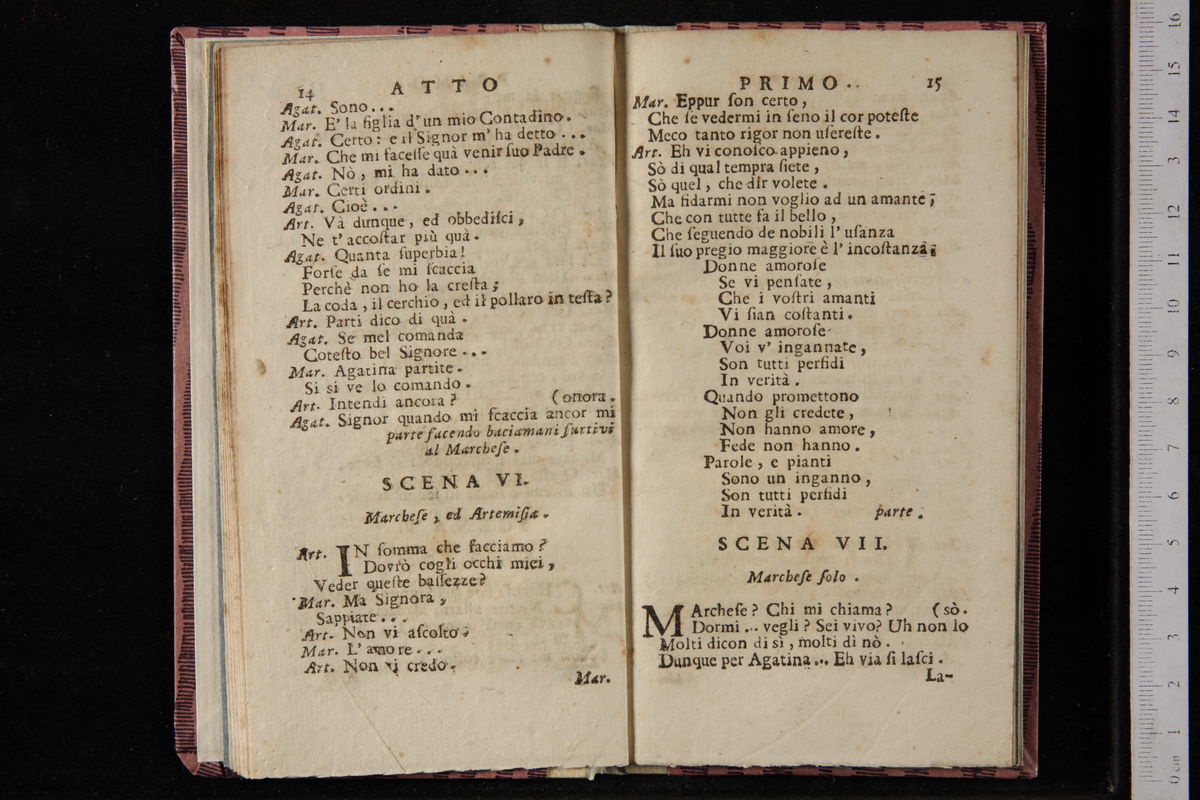 14 ATTO
Agat. Sono...
Mar. E' la figlia d'un mio Contadino.
Agat. Certo: e il Signor m' ha detto...
Mar. Che mi faceſſe quà venir ſuo Padre.
Agat. Nò, mi ha dato...
Mar. Certi ordini.
Agat. Cioè...
Art. Và dunque, ed obbediſci,
Ne t'accoſtar più quà.
Agat. Quanta ſuperbia!
Forſe da ſe mi ſcaccia
Perchè non ho la creſta;
La coda, il cerchio, ed il pollaro in teſta?
Art. Parti dico di quà.
Agat. Se mel comanda
Coteſto bel Signore...
Mar. Agatina partite.
Si si ve lo comando.
Art. Intendi ancora? (onora.
Agat. Signor quando mi ſcaccia ancor mi
parte facendo baciamani furtivi
al Marcheſe.
SCENA VI.
Marcheſe, ed Artemiſia.
Art. IN ſomma che facciamo?
Dovrò cogli occhi miei,
Veder queſte baſſezze?
Mar. Ma Signora,
Sappiate...
Art. Non vi aſcolto.
Mar. L' amore...
Art. Non vi credo.
Mar.
PRIMO. 15
Mar. Eppur ſon certo,
Che ſe vedermi in ſeno il cor poteſte
Meco tanto rigor non uſereſte.
Art. Eh vi conoſco appieno,
Sò di qual tempra ſiete,
Sò quel, che dir volete.
Ma fidarmi non voglio ad un amante;
Che con tutte fa il bello,
Che ſeguendo de nobili l' uſanza
Il ſuo pregio maggiore è l' incoſtanza;
Donne amoroſe
Se vi penſate,
Che i voſtri amanti
Vi ſian coſtanti.
Donne amoroſe
Voi v' ingannate,
Son tutti perfidi
In verità.
Quando promettono
Non gli credete,
Non hanno amore,
Fede non hanno.
Parole, e pianti
Sono un inganno,
Son tutti perfidi
In verità. parte.
SCENA VII.
Marcheſe ſolo.
MArcheſe? Chi mi chiama? (sò.
Dormi... vegli? Sei vivo? Uh non lo
Molti dicon di sì, molti dì nò.
Dunque per Agatina... Eh via ſi laſci.
La-
0 cm 1 2 3 4 5 6 7 8 9 10 11 12 13 14 15 16